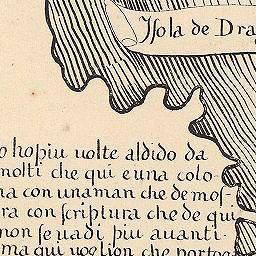 Isola de Dra
o hopiu uolte aldido da
molti che qui e una colo-
na con unaman che de mos-
ra con scriptura che de qui
non se uadi piu auanti.
ma qui uoglion che portoga